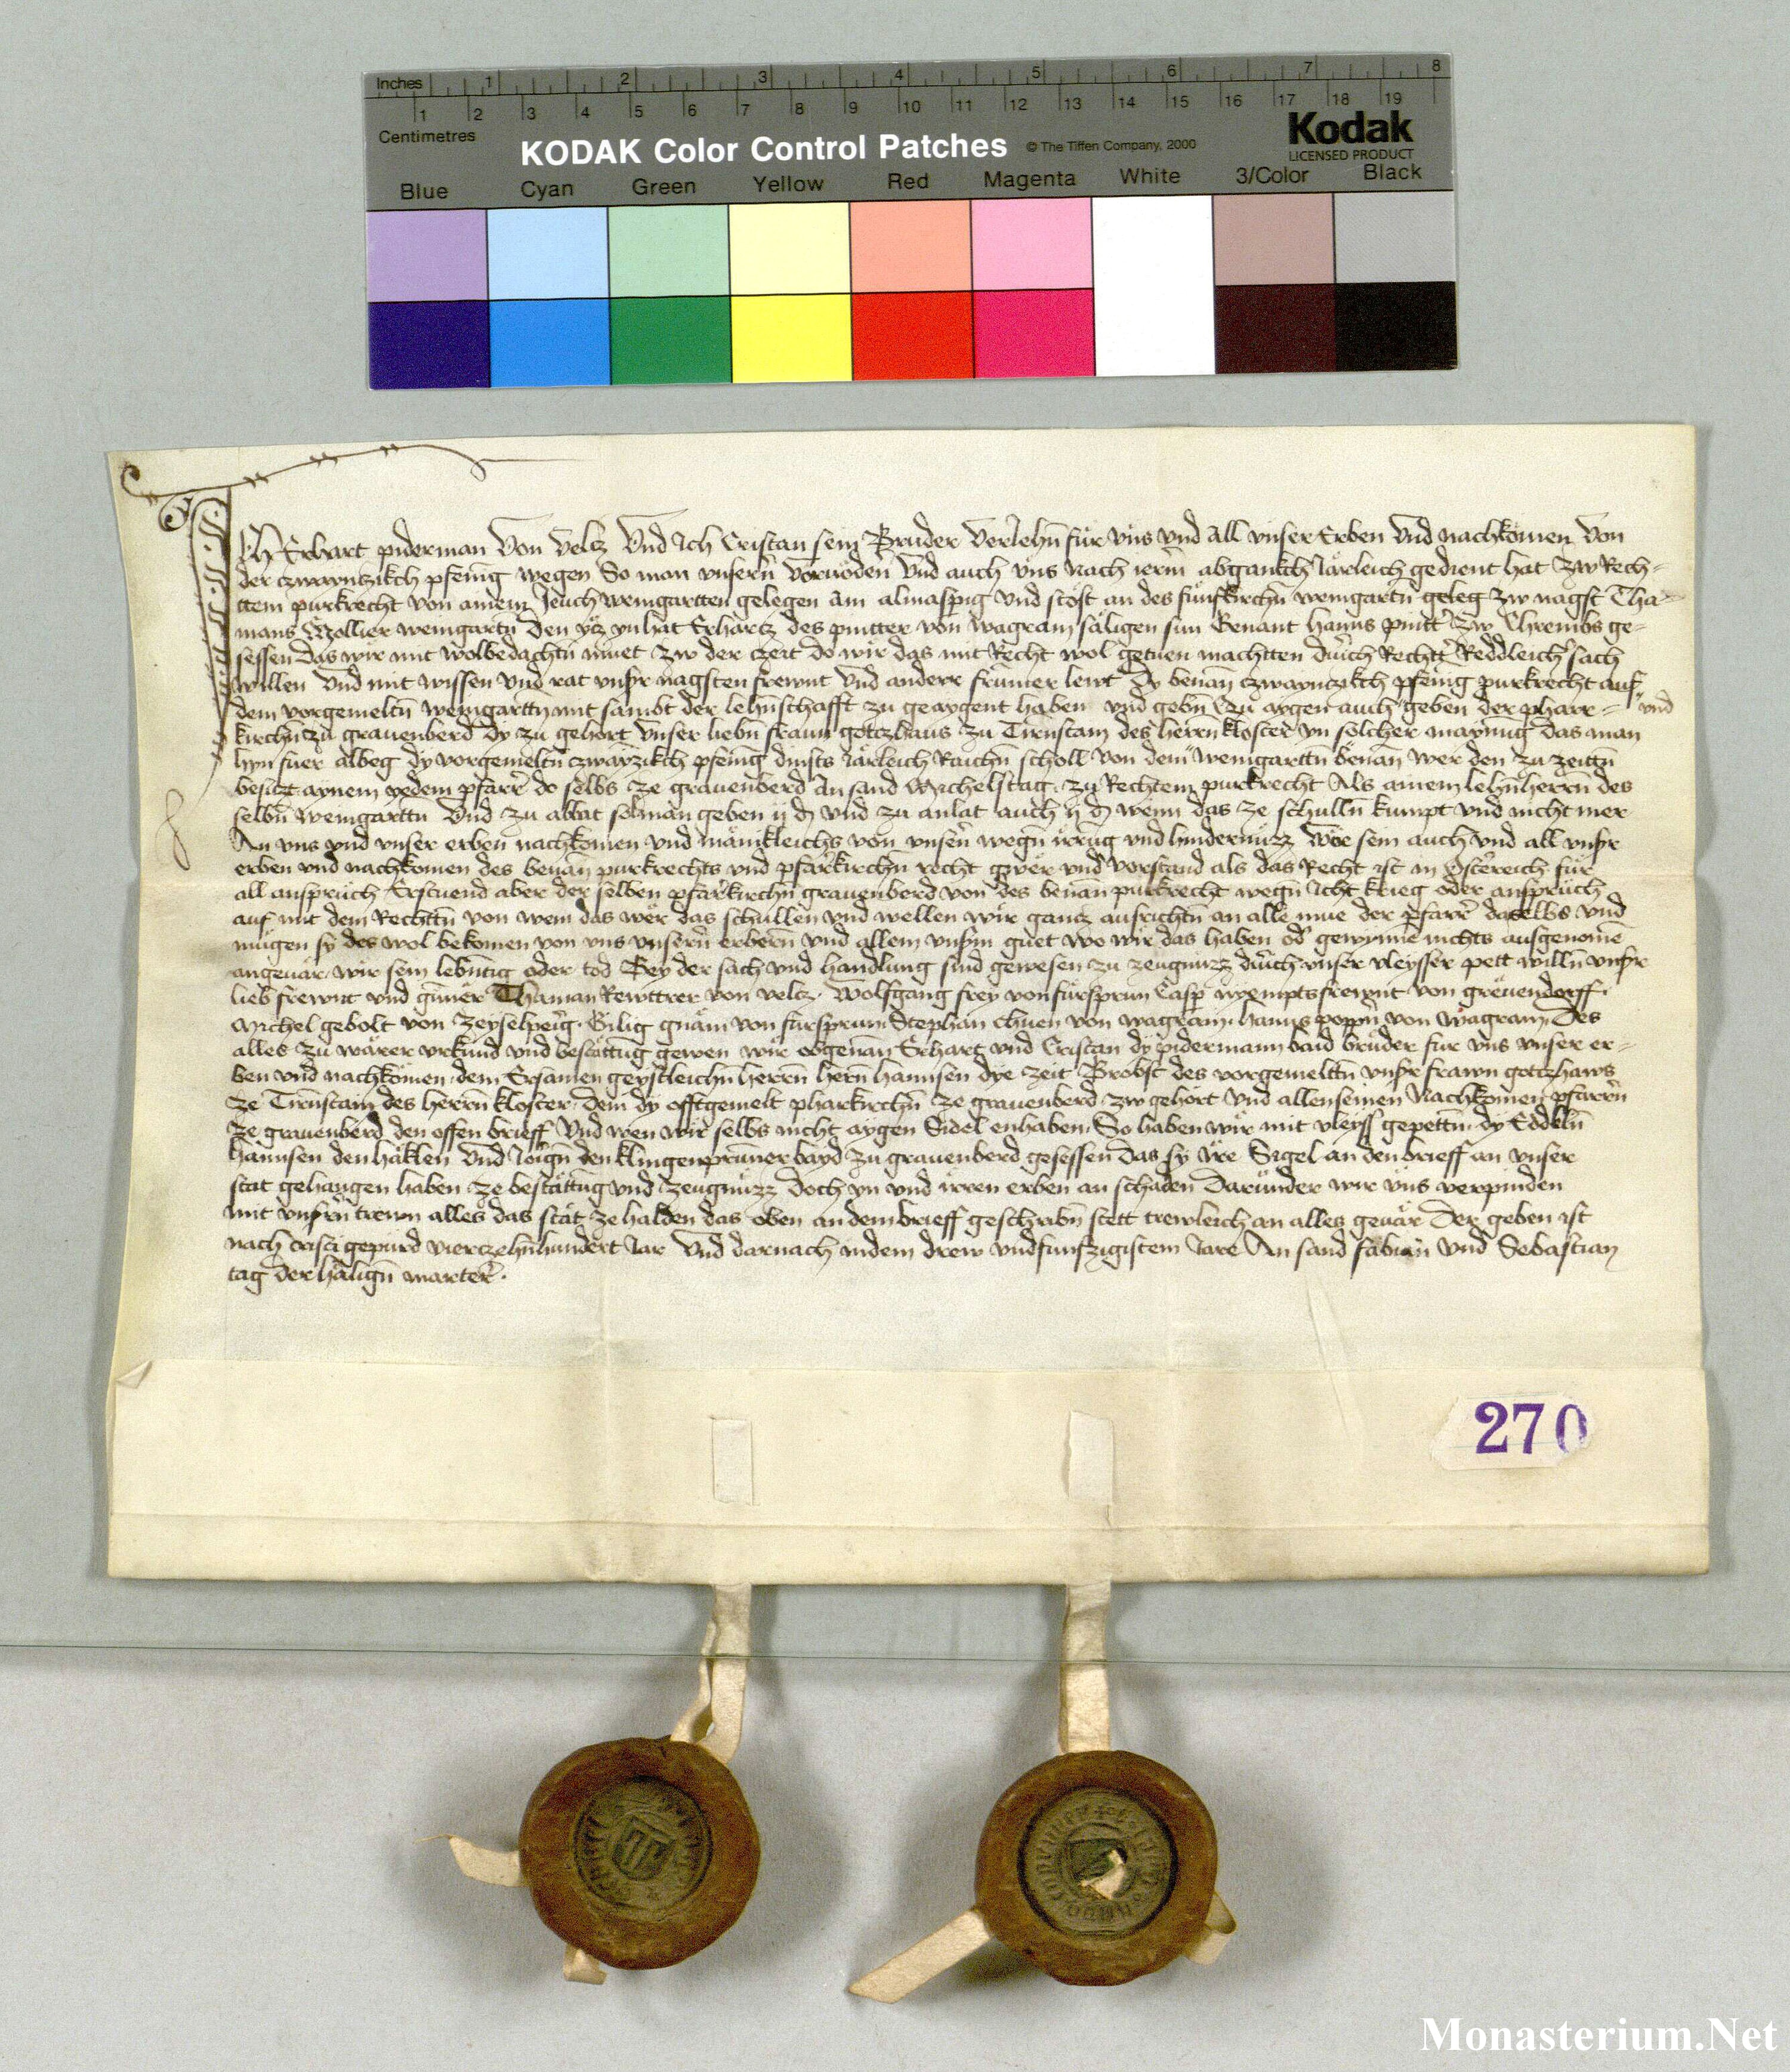 Inches 1 2 3 4 5 6 7 8
1 2 3 4 5 6 7 8 9 10 11 12 13 14 15 16 17 18 19
Centimetres
KODAK Color Control Patches © The Tiffen Company, 2000
Kodak
LICENSED PRODUCT
Blue Cyan Green Yellow Red Magenta White 3/Color Black
Ich Erhart piderman Von Veltz Vnd Ich Cristan sein Bruder Veriehn̄ für vns vnd all vnser Erben Vnd nachkömen Von
der czwayntzikch pfenīg wegen So man vnsern̄ vorvödern Vnd auch vns nach ierm abgankch Järleich gedient hat Zw Rech-
ttem purkrecht von ainem Jeuch weingartten gelegen am almaspig vnd stost an des fünfkirchn̄ weingartn̄ geleg zw nagst Tha-
mans weingartn̄ Den ytz ynhat Erhartz des pintter von wagram säligen sun Genant hanns pintt̄ Zw Chrembs ge-
sessen Das wir mit wolbedachtn̄ muet Zw der czeit do wir das mit Recht wol getuen machtten durch Rechtt̄ Reddleich sach
willen Vnd mit wissen Vnd rat vnsr̄ nagsten frewnt Vnd anderr frumer lewt Dy benān czwayntzikch pfenig purkrecht auf
dem vorgemeltn̄ weingarttn̄ mit sambt der lehnschafft zu geaygent haben vnd gebn̄ Czu aygen auch geben der pharr- vnd
kirchn̄ zu grauenberd Dy zu gehört Vnser liebn̄ frawn gotczhaus zu Tirnstain des herrn̄ kloster yn solcher maynūg Das man
hyn füer albeg dy vorgemeltn̄ czwayzikch pfenīg dinsts Järleich Raichn̄ scholl von dem weingarttn̄ benān wer den zu zeittn̄
besitzt aynem yedem pfarr̄ do selbs ze grauenberd An sand Michelstag zu Rechtem purkrecht Als ainem lehn̄herrn̄ des
selbn̄ weingarttn̄ Vnd zu ablat sol man geben ij ₰ vnd zu anlat auch ij ₰ wenn das ze schulln̄ kumpt vnd nicht mer
An vns vnd vnser erben nachkömen vnd mänikleichs von vnsern̄ wegn̄ irrūg vnd hindernuzz Wir sein auch vnd all vnsr̄
erben vnd nachkomen des benān purkrechts vnd pfarrkirchn̄ recht gwer vnd vorstand als das Recht ist in Österreich für
all anspruch Erstuend aber der selben pfarrkirchn̄ grauenberd von des benān purkrecht wegn̄ Icht krieg oder anspruch
auf mit dem Rechttn̄ von wem das wer das schullen vnd wellen wir gancz ausrichtn̄ an alle mue der pfarr̄ daselbs vnd
mügen sy des wol bekomen von vns vnsern̄ erbenn̄ vnd allem vnsrm guet wo wir das haben od̄ gewynnē nichts ausgenomē
angeuär wir sein lebntig oder tod Bey der sach vnd handlung sind gewesen zu zeugnuzz durch vnser vleysser pett willn̄ vnsr̄
lieb frewnt vnd günner Thaman Rewttrer von veltz · Wolfgang frey von fürsprun Casp̄ frewnt von greuendorff ·
Michel gebolt von Zeyselperg · Gilig gnäm von fürsprun · Stephan chuen von wagram · hanns poppn̄ von wagram · Des
alles zu warer vrkund vnd bestättūg geben wir obgenān Erhart vnd Cristan dy pidermann baid brüder für vns vnser er-
ben vnd nachkömen dem Ersamen geystleichn̄ herrn̄ hern̄ hannsen dye zeit Brobst des vorgemelttn̄ vnsr̄ frawn gotczhaws
ze Tirnstain des herrn̄ kloster dem dy offtgemelt pharkirchn̄ ze grauenberd zw gehört vnd allen seinen Nachkömen pfarrn̄
ze grauenberd den offen brieff Vnd wen wir selbs nicht aygen Sidel enhaben So haben wir mit vleyss gepettn̄ dy Eddeln̄
hannsen den häklen Vnd Jörgn̄ den klingenprunner bayd zu grauenberd gesessen Das sy ire Sigel an den brieff an vnser
stat gehangen haben ze bestättūg vnd zeugnuzz Doch yn vnd irren erben an schaden Darunder wir vns verpinden
mit vnsrn̄ trewn alles das stät ze halden das oben an dem brieff geschribn̄ stett trewleich an alles geuär Der geben ist
nach cristi gepurd vierczehnhundert Jar Vnd darnach in dem drew vnd funfzigistem Jare An sand fabian vnd Sebastian
tag Der hälign̄ marter̄ ·
270
Monasterium.Net